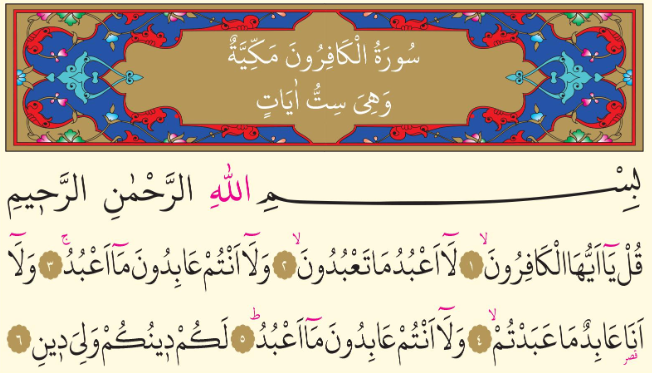 سُورَةُ الْكَافِرُونَ مَكِّيَّةٌ
وَهِىَ سِتُّ اٰيَاتٍ
بِسْمِ اللّٰهِ الرَّحْمٰنِ الرَّح۪يمِ
قُلْ يَٓا اَيُّهَا الْكَافِرُونَۙ ١ لَٓا اَعْبُدُ مَا تَعْبُدُونَۙ ٢ وَلَٓا اَنْتُمْ عَابِدُونَ مَٓا اَعْبُدُۚ ٣ وَلَٓا
اَنَا۬ عَابِدٌ مَا عَبَدْتُمْۙ ٤ وَلَٓا اَنْتُمْ عَابِدُونَ مَٓا اَعْبُدُۜ ٥ لَكُمْ د۪ينُكُمْ وَلِىَ د۪ينِ ٦
قصر